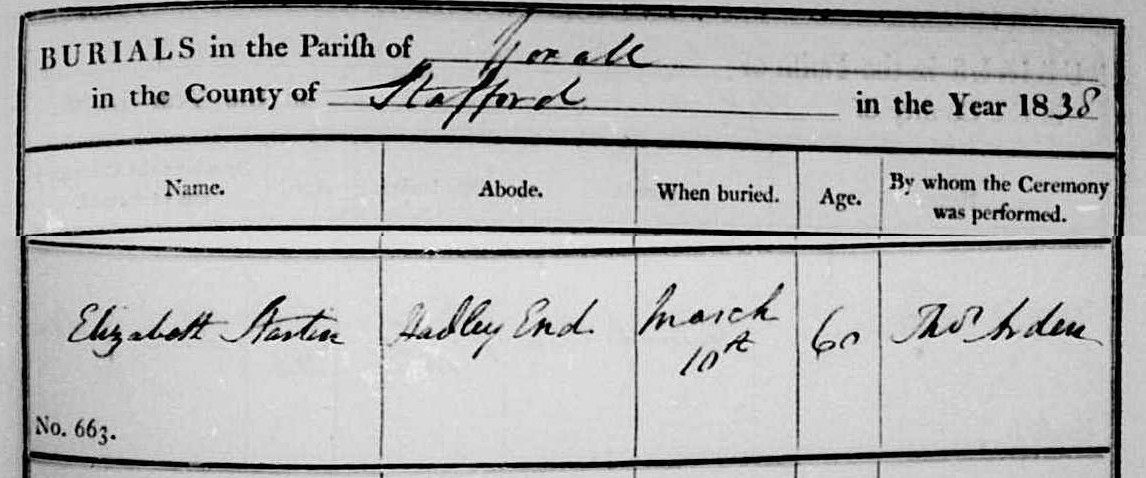 BURIALS in the Pariſh of Yoxall
in the County of Stafford in the Year 1838
Name. Abode. When buried. Age. By whom the Ceremony was performed.
Elizabeth Startin Hadley End March 10th 60 Thos Arden
No. 663.